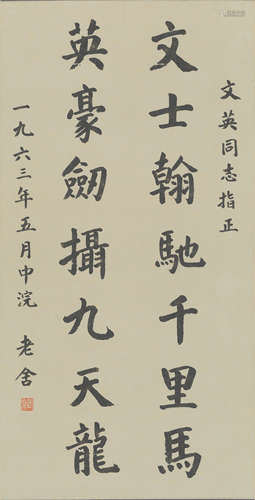 文英同志指正
文士翰馳千里馬
英豪劒攝九天龍
一九六三年五月中浣 老舍